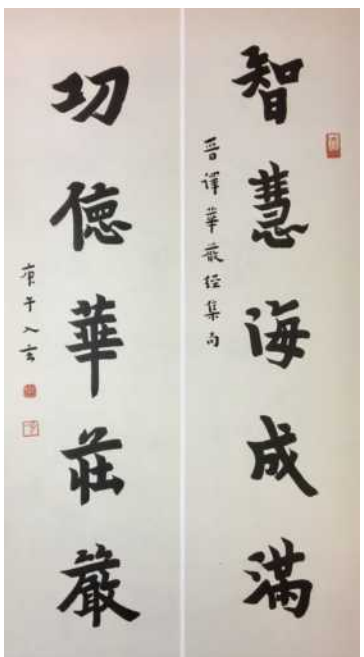 智慧海成滿
晋譯華嚴經集句
功德華莊嚴
庚午入玄